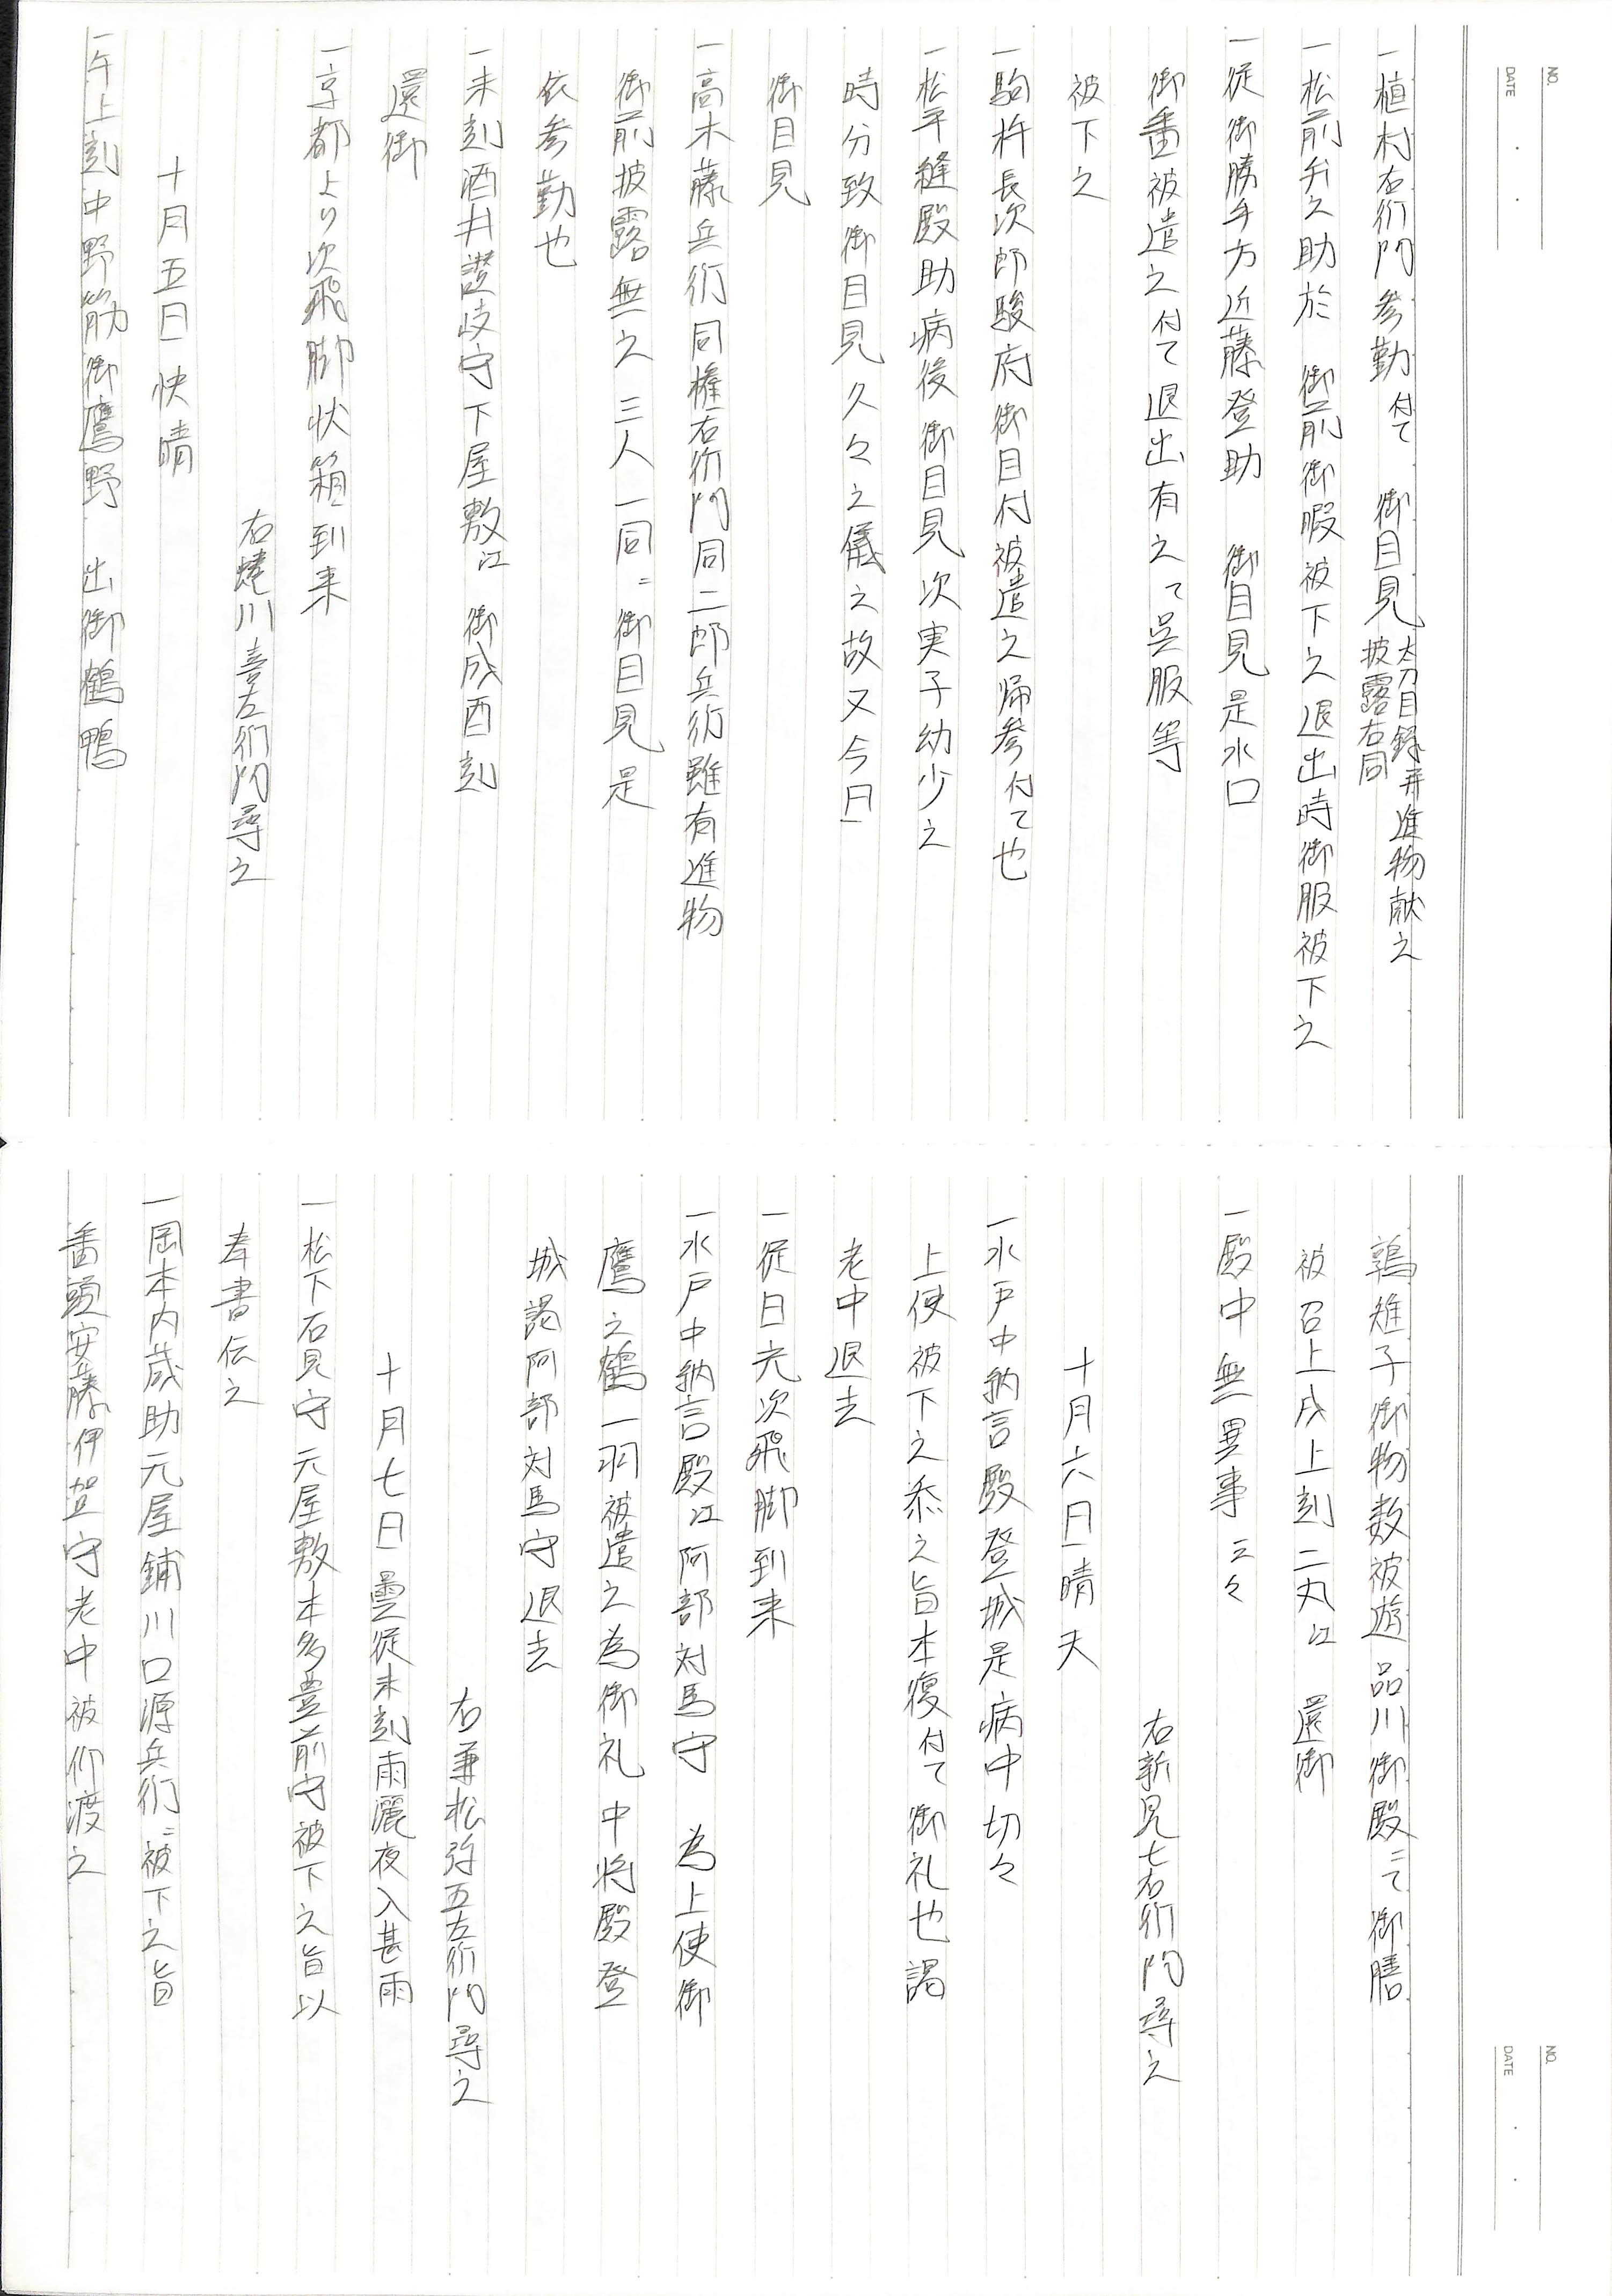 NO.
DATE
一植村右衛門参勤付て 御目見太刀目録并進物献之
披露右同
一松前弁之助於 御前御暇被下之退出時御服被下之
一従御勝手方近藤登助 御目見是水口
御番被遣之付て退出有之て呉服等
被下之
一駒杵長次郎駿府御目付被遣之帰参付て也
一松平縫殿助病後御目見次実子幼少之
時分致御目見久々之儀之故又今日
御目見
一高木藤兵衛同権右衛門同二郎兵衛雖有進物
御前披露無之三人一同ニ御目見是
依参勤也
一未刻酒井讃岐守下屋敷江 御成酉刻
還御
一京都より次飛脚状箱到来
右蜷川喜左衛門尋之
十月五日快晴
一午上刻中野筋御鷹野 出御鶴鴨
NO.
DATE
鶉雉子御物数被遊品川御殿ニて御膳
被召上戌上刻二丸江 還御
一殿中無異事云々
右新見七右衛門尋之
十月六日晴天
一水戸中納言殿登城是病中切々
上使被下之忝之旨本復付て御礼也謁
老中退去
一従日光次飛脚到来
一水戸中納言殿江阿部対馬守 為上使御
鷹之鶴一羽被遣之為御礼中将殿登
城謁阿部対馬守退去
右兼松弥五左衛門尋之
十月七日曇従未刻雨灑夜入甚雨
一松下石見守元屋敷本多豊前守被下之旨以
奉書伝之
一岡本内蔵助元屋鋪川口源兵衛ニ被下之旨
番頭安藤伊賀守老中被仰渡之